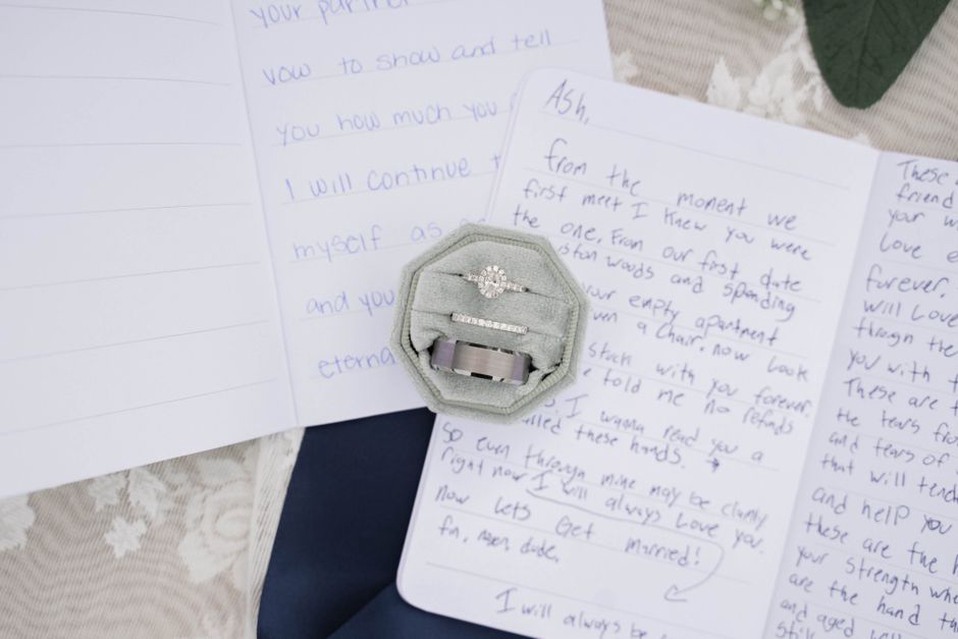 your partner
vow to show and tell
you how much you
I will continue
myself as
and you
eterna
Ash,
from the moment we
first meet I knew you were
the one. From our first date
ston woods and spending
our empty apartment
a Chair. now look
stuck with you forever.
told me no refunds
I wanna read you a
called these hands.
So even through mine may be clamy
right now I will always Love you.
now Lets Get married!
dude.
I will always be
These
friend
your
Love
forever.
will Love
throgh the
you with
These are
the tears fro
and tears of
that will tend
and help you
these are the h
your strength whe
are the hand th
and aged
still